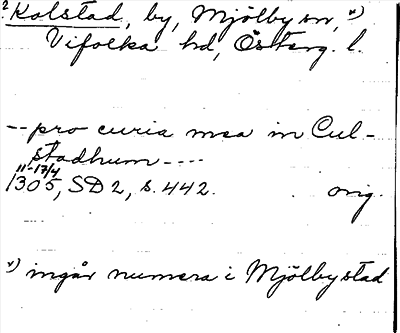 2 Kolstad, by, Mjölby sn, *)
Vifolka hd, Österg. l.
-- pro curia mea in Cul-
stadhum ----
11-17/4
1305, SD 2, s. 442. orig.
*) ingår numera i Mjölby stad